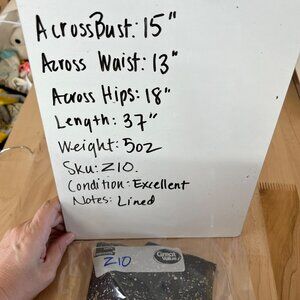 Across Bust: 15"
Across Waist: 13"
Across Hips: 18"
Length: 37"
Weight: 5oz
Sku: Z10.
Condition: Excellent
Notes: Lined
Great Value
Z10